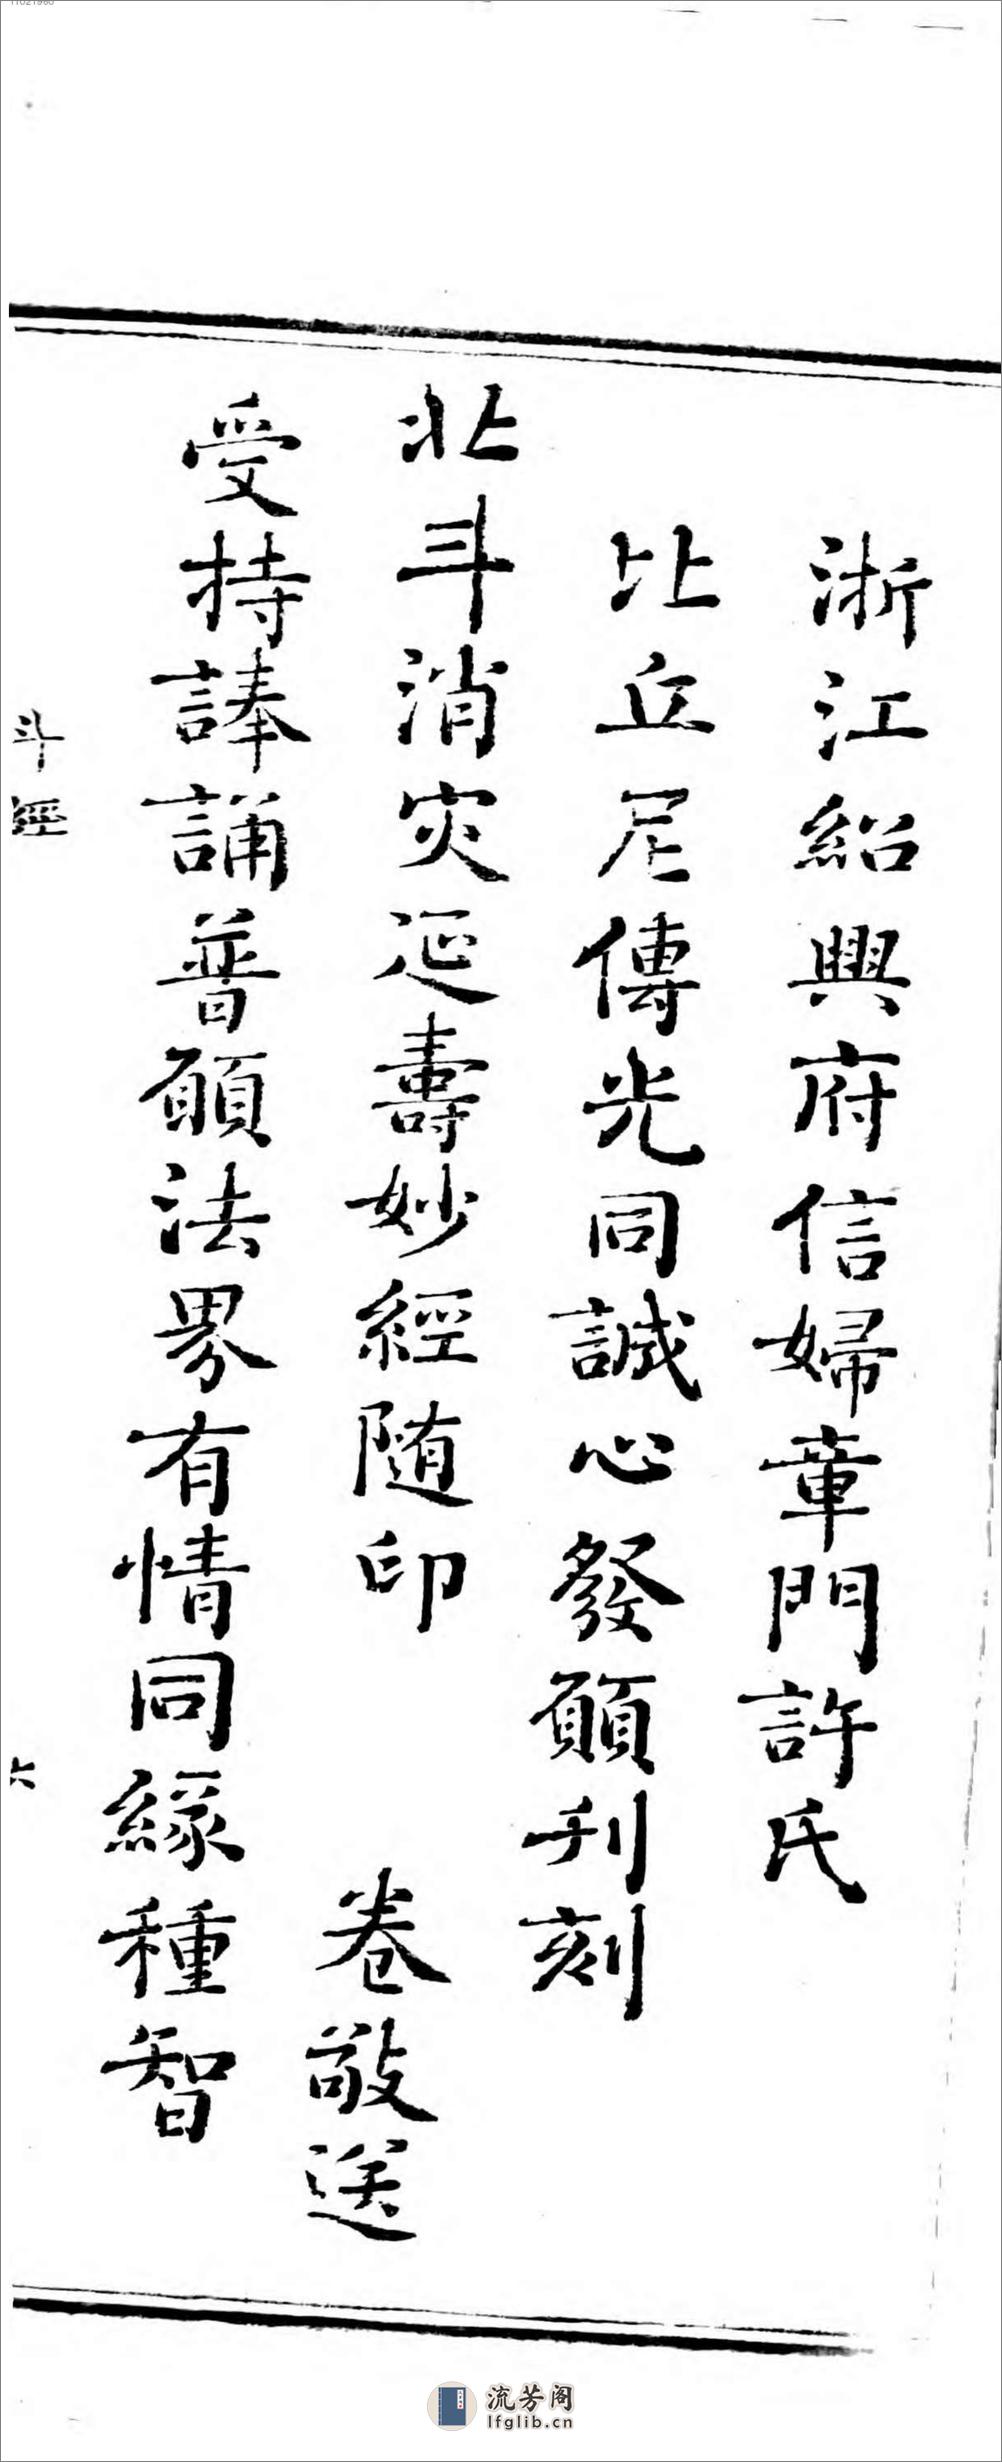 浙江紹興府信婦章門許氏
比丘尼傳光同誠心發願刋刻
北斗消灾延壽妙經隨印　卷敬送
受持諽誦普願法界有情同緣種智
斗經
六
流芳阁
lfglib.cn